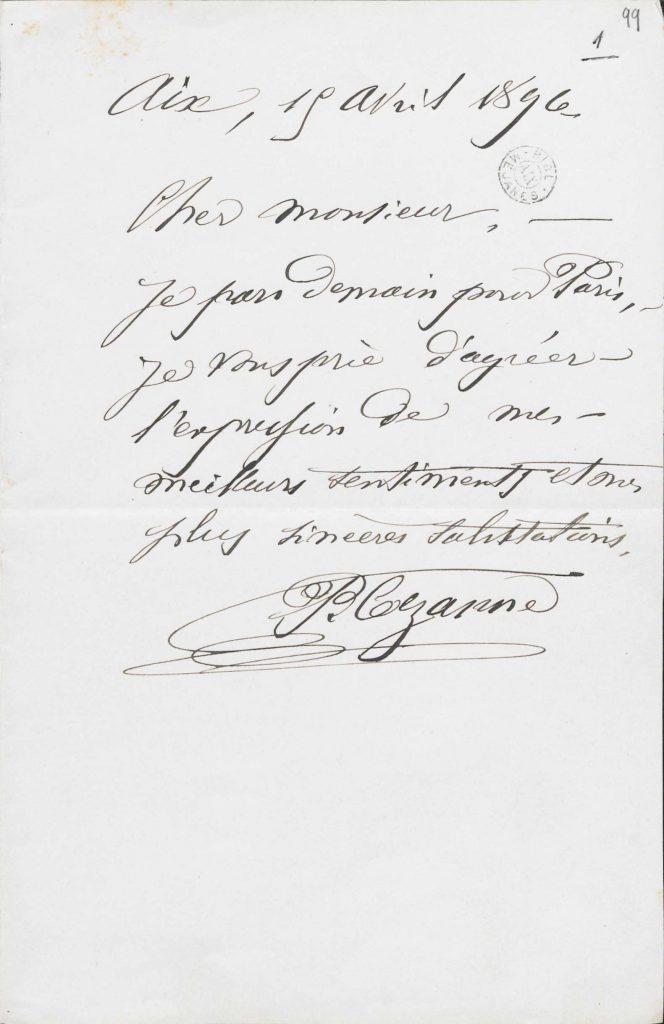 99
1
Aix, 15 Avril 1896.
BIBL. MEJANES
AIX
Cher monsieur, —
Je pars demain pour Paris, —
Je vous prie d'agréer —
l'expression de mes —
meilleurs sentiments et mes
plus sincères salutations,
P. Cezanne